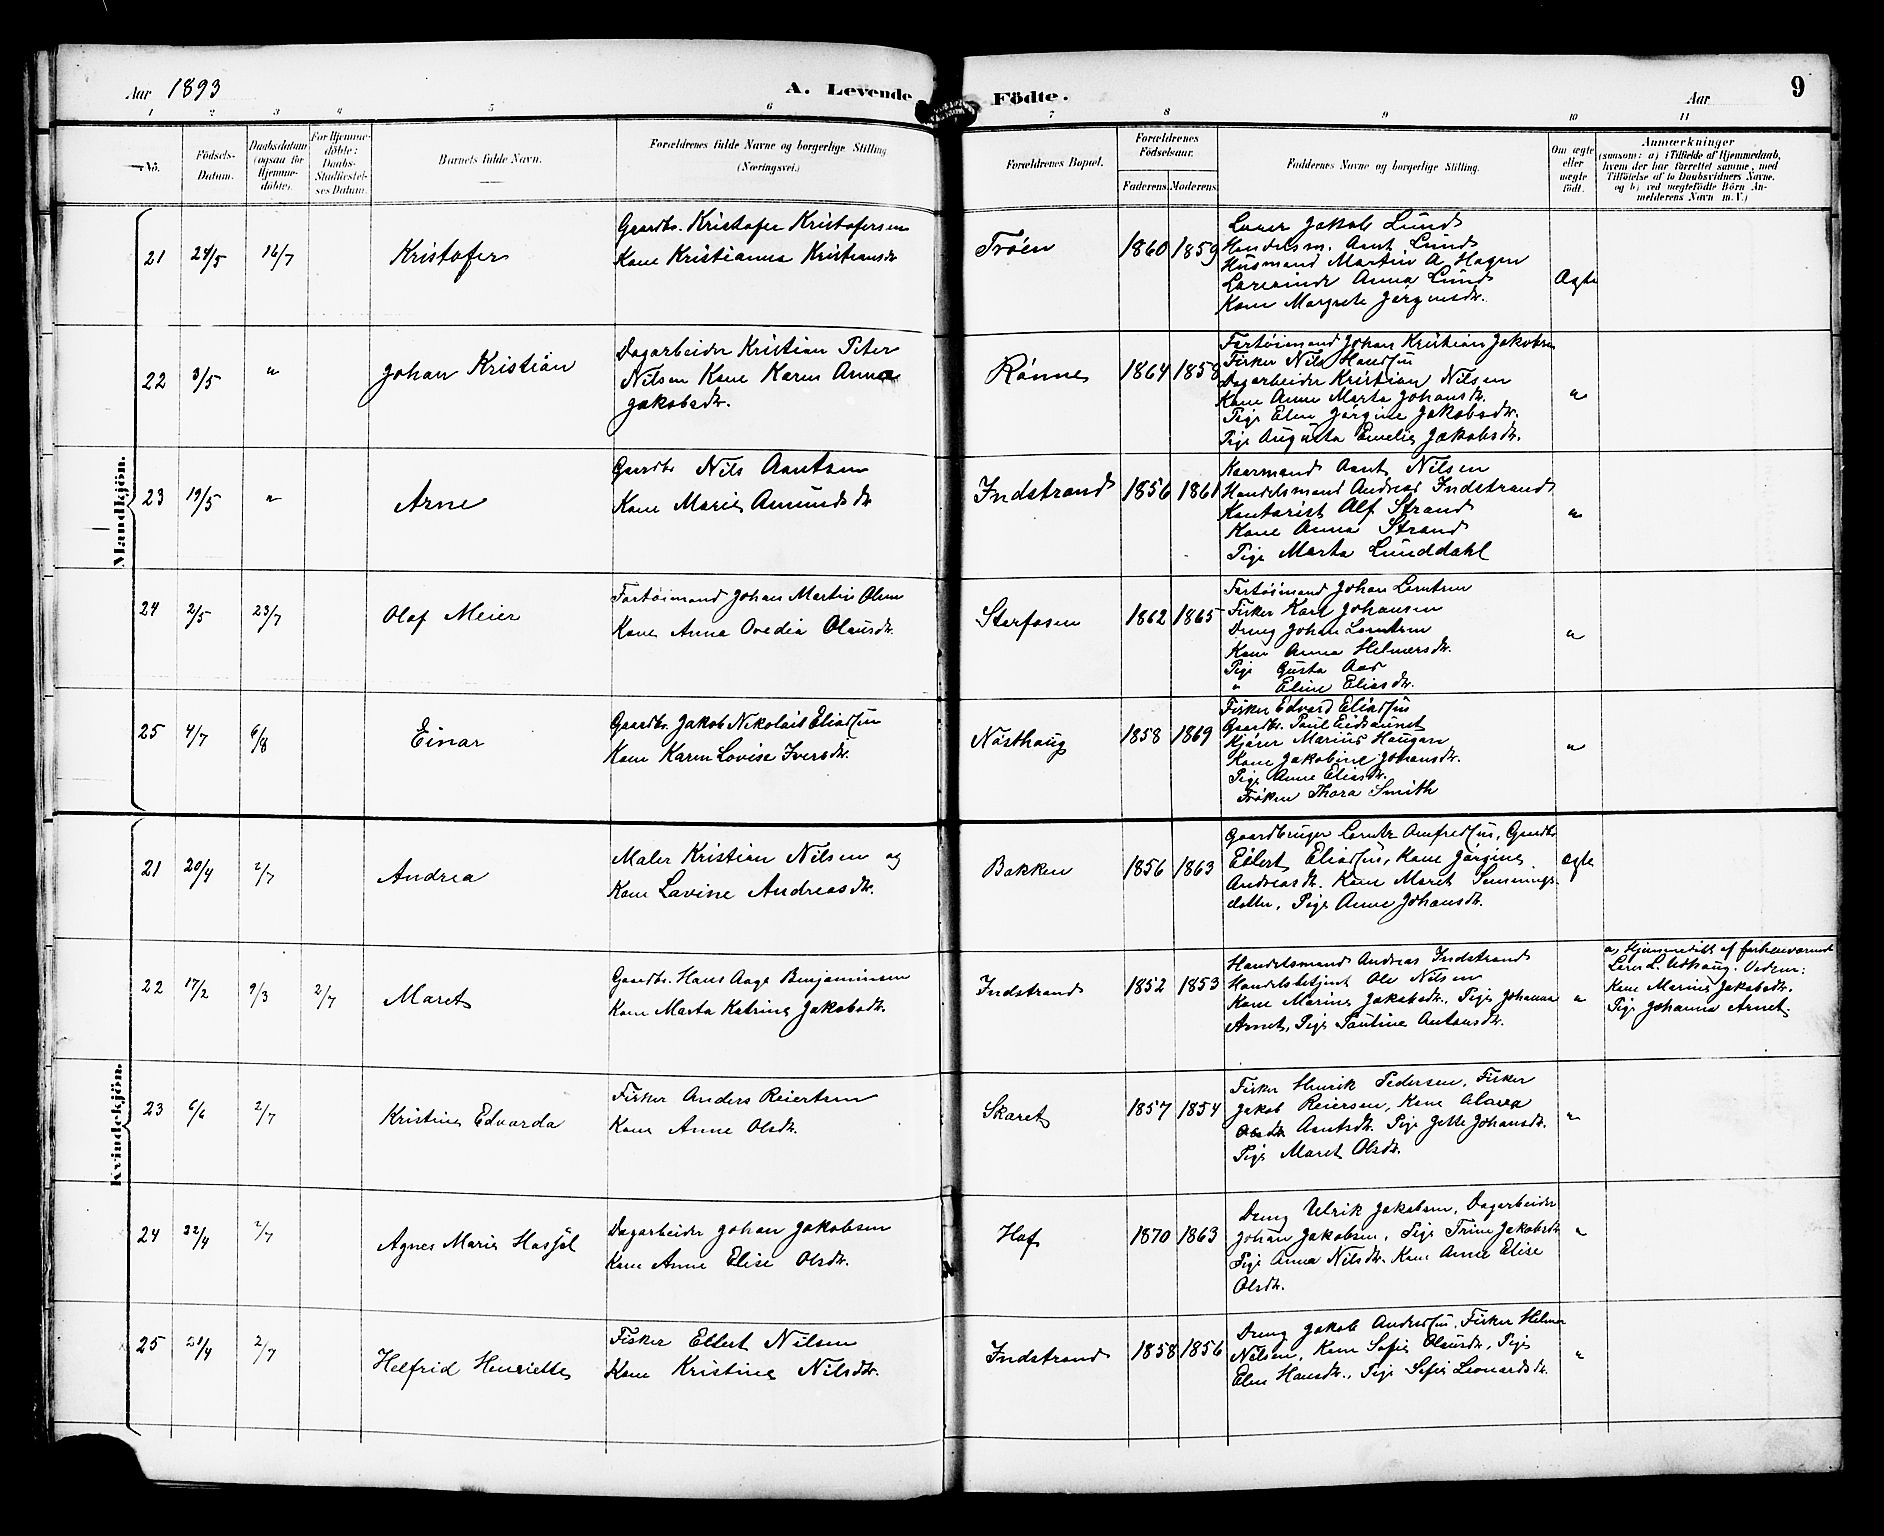 Aar 1893
A. Levende
Födte.
Aar
9
1 2 3 4 5 6 7 8 9 10 11
No.
Födsels-
Datum.
Daabsdatum
(ogsaa for
Hjemme-
döbte).
For Hjemme-
döbte:
Daabs-
Stadfæstel-
ses Datum.
Barnets fulde Navn.
Forældrenes fulde Navne og borgerlige Stilling
(Næringsvei.)
Forældrenes Bopæl.
Forældrenes
Födselsaar.
Faderens. Moderens.
Faddernes Navne og borgerlige Stilling.
Om ægte
eller
uægte
født.
Anmærkninger
(saasom: a) i Tilfælde af Hjemmedaab,
hvem der har forrettet samme, med
Tilföielse af to Daabsvidners Navne.
og b) ved uægtefödte Börn An-
melderens Navn m. V.)
Mandkjön.
21 24/5 16/7 Kristofer
Gaardbr. Kristofer Kristofersen
Kone Kristianna Kristiansdr.
Trøen 1860 1859
Lærer Jakob Lund
Handelsm. Arnt Lund
Husmand Martin A Hagen
Lærerinde Anna Lund
Kone Margrete Jørgensdr.
Ægte
22 3/5 " Johan Kristian
Dagarbeider Kristian Peter
Nilsen Kone Karen Anna
Jakobsdr.
Rønne 1864 1858
Fartøimand Johan Kristian Jakobsen
Fisker Nils Hansen
Dagarbeider Kristian Nilsen
Kone Anne Marta Johansdr.
Pige Elen Jørgine Jakobsdr.
Pige Augusta Emelie Jakobsdr.
"
23 19/5 " Arne
Gaardbr Nils Arntsen
Kone Marie Amundsdr
Indstrand 1856 1861
Kaarmand Arnt Nilsen
Handelsmand Andreas Indstrand
Kontorist Alf Strand
Kone Anna Strand
Pige Marta Lunddahl
"
24 2/5 23/7 Olaf Meier
Fartøimand Johan Martin Olsen
Kone Anna Ovedia Olausdr.
Storfosen 1862 1865
Fartøimand Johan Lorntsen
Fisker Karl Johansen
Dreng Johan Lorntsen
Kone Anna Helmersdr.
Pige Gusta Aas
" Eline Eliasdr.
"
25 4/7 6/8 Einar
Gaardbr. Jakob Nikolai Eliassen
Kone Karen Lovise Iversdr.
Nøsthaug 1858 1869
Fisker Edvard Eliassen
Gaardbr. Paul Eidsaunet
Kjører Marius Haugan
Kone Jakobine Johansdr.
Pige Anne Eliasdr.
Frøken Thora Smith
"
Kvindekjön.
21 20/4 2/7 Andrea
Maler Kristian Nilsen og
Kone Lavine Andreasdr.
Bakken 1856 1863
Gaardbruger Lorntz Arnfredsen, Gaardbr
Eilert Eliassen, Kone Jørgine
Andreasdr. Kone Maret Semmings-
datter, Pige Anne Johansdr.
Ægte
22 17/2 9/3 2/7 Maret
Gaardbr. Hans Aage Benjaminsen
Kone Marta Katrine Jakobsdr.
Indstrand 1852 1853
Handelsmand Andreas Indstrand
Handelsbetjent Ole Nilsen
Kone Marine Jakobsdr. Pige Johanna
Arnet, Pige Pauline Antonsdr.
"
a, Hjemmedøbt af forhenværende
Lærer L. Udhaug. Vidner:
Kone Marine Jakobsdr.
Pige Johanna Arnet.
23 6/6 2/7 Kristine Edvarda
Fisker Anders Reiertsen
Kone Anne Olsdr.
Skaret 1857 1854
Fisker Henrik Pedersen, Fisker
Jakob Reiersen, Kone Olava
Arntsdr. Pige Jette Johansdr.
Pige Maret Olsdr.
"
24 22/4 2/7 Agnes Marie Hassel
Dagarbeider Johan Jakobsen
Kone Anne Elise Olsdr.
Hof 1870 1863
Dreng Ulrik Jakobsen, Dagarbeider
Johan Jakobsen, Pige Trine Jakobsdr
Pige Anna Nilsdr. Kone Anne Elise
Olsdr.
"
25 21/4 2/7 Helfrid Henriette
Fisker Ellert Nilsen
Kone Kristine Nilsdr.
Indstrand 1858 1856
Dreng Jakob Andersen, Fisker Helmer
Nilsen, Kone Sofie Olausdr, Pige
Elen Hansdr., Pige Sefie Leonardsdr.
"